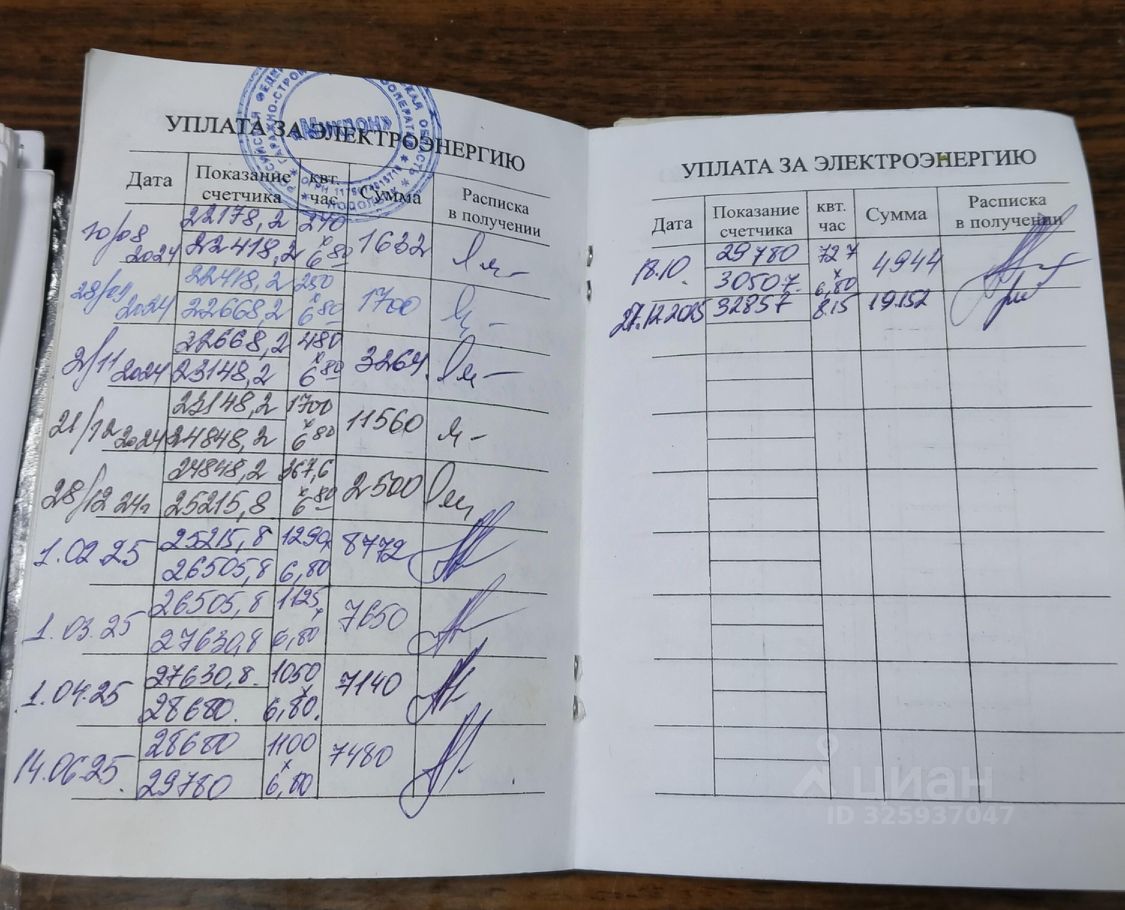 УПЛАТА ЗА ЭЛЕКТРОЭНЕРГИЮ
«Микрон»
Дата Показание счетчика квт. час Сумма Расписка в получении
10/08 2024 22178,2 240 1632
22418,2 x 6 80
28/09 2024 22418,2 250 1700
22668,2 x 6 80
2/11 2024 22668,2 480 3264
23148,2 x 6 80
21/12 2024 23148,2 1700 11560
24848,2 x 6 80
28/12 24г 24848,2 367,6 2500
25215,8 x 6 80
1.02.25 25215,8 1290x 8772
26505,8 6,80
1.03.25 26505,8 1125 7650
27630,8 x 6,80
1.04.25 27630,8. 1050 7140
28680. x 6,80.
14.06.25. 28680 1100 7480
29780 x 6,80
УПЛАТА ЗА ЭЛЕКТРОЭНЕРГИЮ
Дата Показание счетчика квт. час Сумма Расписка в получении
18.10. 29780 727 4944
30507. x 6,80
27.12.2025 32857 8.15 19.152
циан
ID 325937047